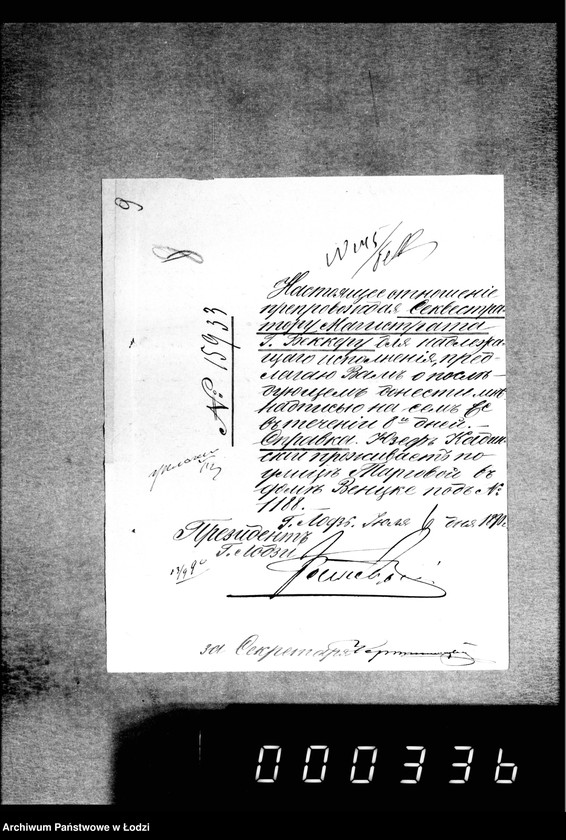 9
8
№ 15933
Настоящее отношение
препровождая Секвестра-
тору Магистрата
Г. Беккеру для надлежа-
щаго исполненія, пред-
лагаю Вамъ о послѣ-
дующемъ донести мнѣ
надписью на семъ же
въ теченіи 8и дней. –
Справка. Юзефъ
проживаетъ по
улицѣ Марговой въ
домѣ подъ №
1188.
Г. Лодзь. Іюля 6 дня 1890 г.
Президентъ
Г. Лодзи
13/9 90
за Секретаря
000336
Archiwum Państwowe w Łodzi